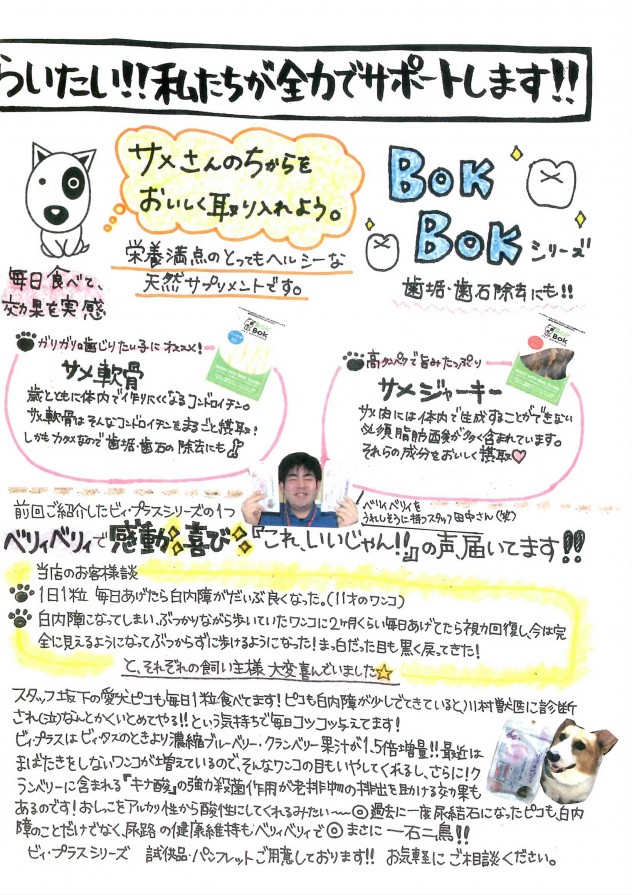 らいたい!!私たちが全力でサポートします!!
サメさんのちからを
おいしく取り入れよう。
BOK
BOK シリーズ
栄養満点のとってもヘルシーな
天然サプリメントです。
歯垢・歯石除去にも!!
毎日食べて、
効果を実感
ガリガリ口歯じりたい子にオススメ!
サメ軟骨
歳とともに体内で作りにくくなるコンドロイチン。
サメ軟骨はそんなコンドロイチンをまるごと摂取!
しかもカタメなので歯垢・歯石の除去にも
高タンパクで旨みたっぷり
サメジャーキー
サメ肉には体内で生成することができない
必須脂肪酸が多く含まれています。
それらの成分をおいしく摂取♡
Bok
Bok
ベリィベリィを
うれしそうに持つスタッフ田中さん(笑)
前回ご紹介したビィ・プラスシリーズの1つ
ベリィベリィで感動喜び『これ、いいじゃん!!』の声、届いてます!!
当店のお客様談
1日1粒 毎日あげたら白内障がだいぶ良くなった。(11才のワンコ)
白内障になってしまい、ぶつかりながら歩いていたワンコに2ヶ月くらい毎日あげてたら視力回復し、今は完
全に見えるようになってぶつからずに歩けるようになった!まっ白だった目も黒く戻ってきた!
と、それぞれの飼い主様 大変喜んでいました☆
スタッフ坂下の愛犬ピコも毎日1粒食べてます!ピコも白内障が少しでてきていると、川村獣医に診断
され(泣)なんとかくいとめてやる!!という気持ちで毎日コツコツ与えてます!
ビィ・プラスはビィ・タスのときより濃縮ブルーベリー・クランベリー果汁が1.5倍増量!!最近は
まばたきをしないワンコが増えているので、そんなワンコの目もいやしてくれるし、さらに!ク
ランベリーに含まれる『キナ酸』の強力殺菌作用が老排出物の排出を助ける効果も
あるのです!おしっこをアルカリ性から酸性にしてくれるみたい〜◎過去に一度尿結石になったピコも、白内
障のことだけでなく、尿路の健康維持もベリィベリィで◎まさに 一石二鳥!!
ビィ・プラスシリーズ 試供品・パンフレットご用意しております!! お気軽にご相談ください。